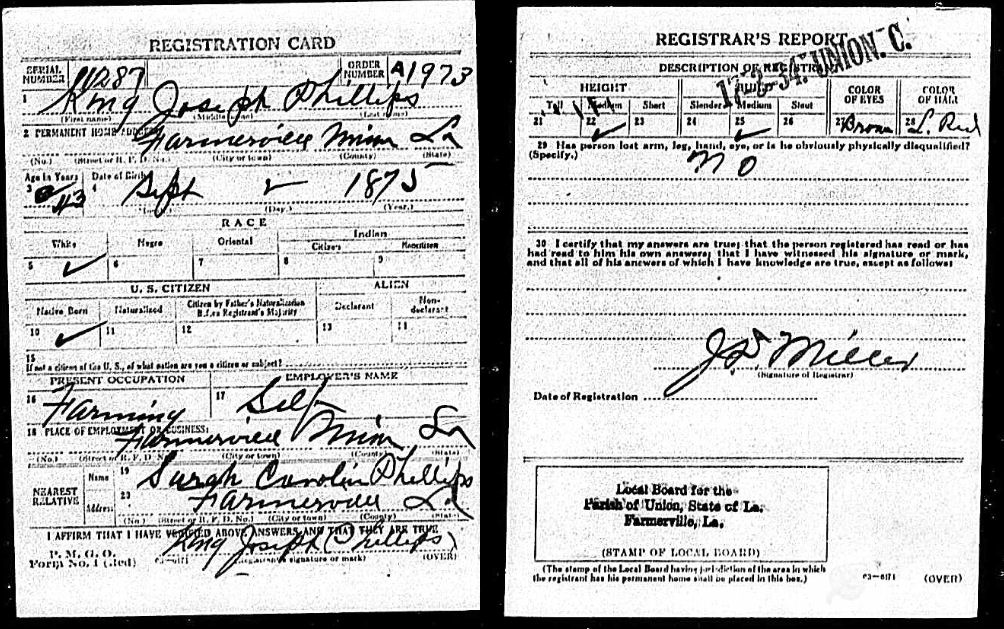 REGISTRATION CARD
SERIAL NUMBER 1287 ORDER NUMBER A1973
1 King Joseph Phillips
(First name) (Middle name) (Last name)
2 PERMANENT HOME ADDRESS: Farmerville Union La
(No.) (Street or R. F. D. No.) (City or town) (County) (State)
Age in Years Date of Birth
3 43 4 Sept 2 1875
(Month.) (Day.) (Year.)
RACE
White Negro Oriental Indian
Citizen Noncitizen
5 ✓ 6 7 8 9
U. S. CITIZEN ALIEN
Native Born Naturalized Citizen by Father's Naturalization Before Registrant's Majority Declarant Non-declarant
10 ✓ 11 12 13 14
15
If not a citizen of the U. S., of what nation are you a citizen or subject?
PRESENT OCCUPATION EMPLOYER'S NAME
16 Farming 17 Self
18 PLACE OF EMPLOYMENT OR BUSINESS:
Farmerville Union La
(No.) (Street or R. F. D. No.) (City or town) (County) (State)
NEAREST RELATIVE Name 19 Sarah Carolin Phillips
Address 20 Farmerville La
(No.) (Street or R. F. D. No.) (City or town) (County) (State)
I AFFIRM THAT I HAVE VERIFIED ABOVE ANSWERS AND THAT THEY ARE TRUE
P. M. G. O.
Form No. 1 (Red) 03—6171 King Joseph Phillips
(Registrant's signature or mark) (OVER)
REGISTRAR'S REPORT
17-2-34. UNION. C.
DESCRIPTION OF REGISTRANT
HEIGHT BUILD COLOR OF EYES COLOR OF HAIR
Tall Medium Short Slender Medium Stout
21 22 ✓ 23 24 25 ✓ 26 27 Brown 28 L. Red
29 Has person lost arm, leg, hand, eye, or is he obviously physically disqualified?
(Specify.) no
30 I certify that my answers are true; that the person registered has read or has
had read to him his own answers; that I have witnessed his signature or mark,
and that all of his answers of which I have knowledge are true, except as follows:
Miller
(Signature of Registrar)
Date of Registration
Local Board for the
Parish of Union, State of La.
Farmerville, La.
(STAMP OF LOCAL BOARD)
(The stamp of the Local Board having jurisdiction of the area in which
the registrant has his permanent home shall be placed in this box.) 03—6171 (OVER)